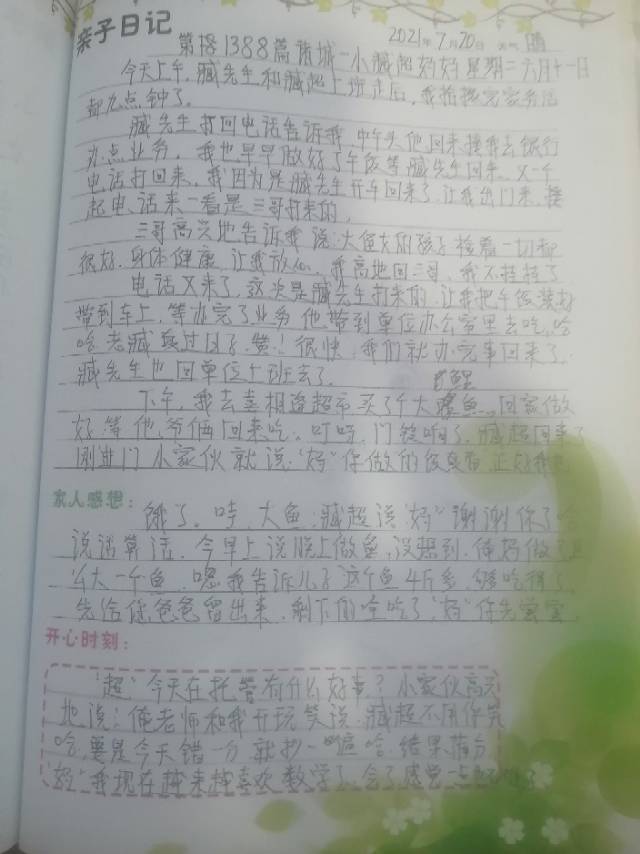 亲子日记
2021年7月20日 天气 晴
第 1388篇 诸城一小臧超好好 星期二 六月十一日
今天上午,臧先生和臧超上班走后,我拾掇完家务活
都九点钟了。
臧先生打回电话告诉我,中午头他回来接我去银行
办点业务,我也早早做好了午饭等臧先生回来。又一个
电话打回来,我因为是臧先生开车回来了,让我出门来,接
起电话来一看是三哥打来的。
三哥高兴地告诉我说:大鱼女的孩子检看一切都
很好,身体健康,让我放心。我高地回三哥,我不挂挂了
电话又来了,这次是臧先生打来的,让我把午饭装好
带到车上,等办完了业务他带到单位办公室里去吃,哈
哈老臧真过日子,赞!很快,我们就办完事回来了。
臧先生也回单位上班去了。
下午,我去喜相逢超市买了个大鱼。回家做
好,等他爷俩回来吃。叮呤,门铃响了,臧超回来了
刚进门小家伙就说:"妈"你做的饭真香,正好我
家人感想:
饿了。哇,大鱼,臧超说"妈"谢谢你了哈
说话算话,今早上说晚上做鱼,没想到,俺妈做
么大一个鱼,嗯我告诉儿子这个鱼4斤多,够吃得了,
先给你爸爸留出来,剩下的全吃了"妈"你先尝尝,
开心时刻:
"超"今天在托管有什么好事?小家伙高兴
地说:俺老师和我开玩笑说,臧超不用你笑
哈,要是今天错一分就抄一遍哈,结果满分
"妈"我现在越来越喜欢数学了,会了感觉一点